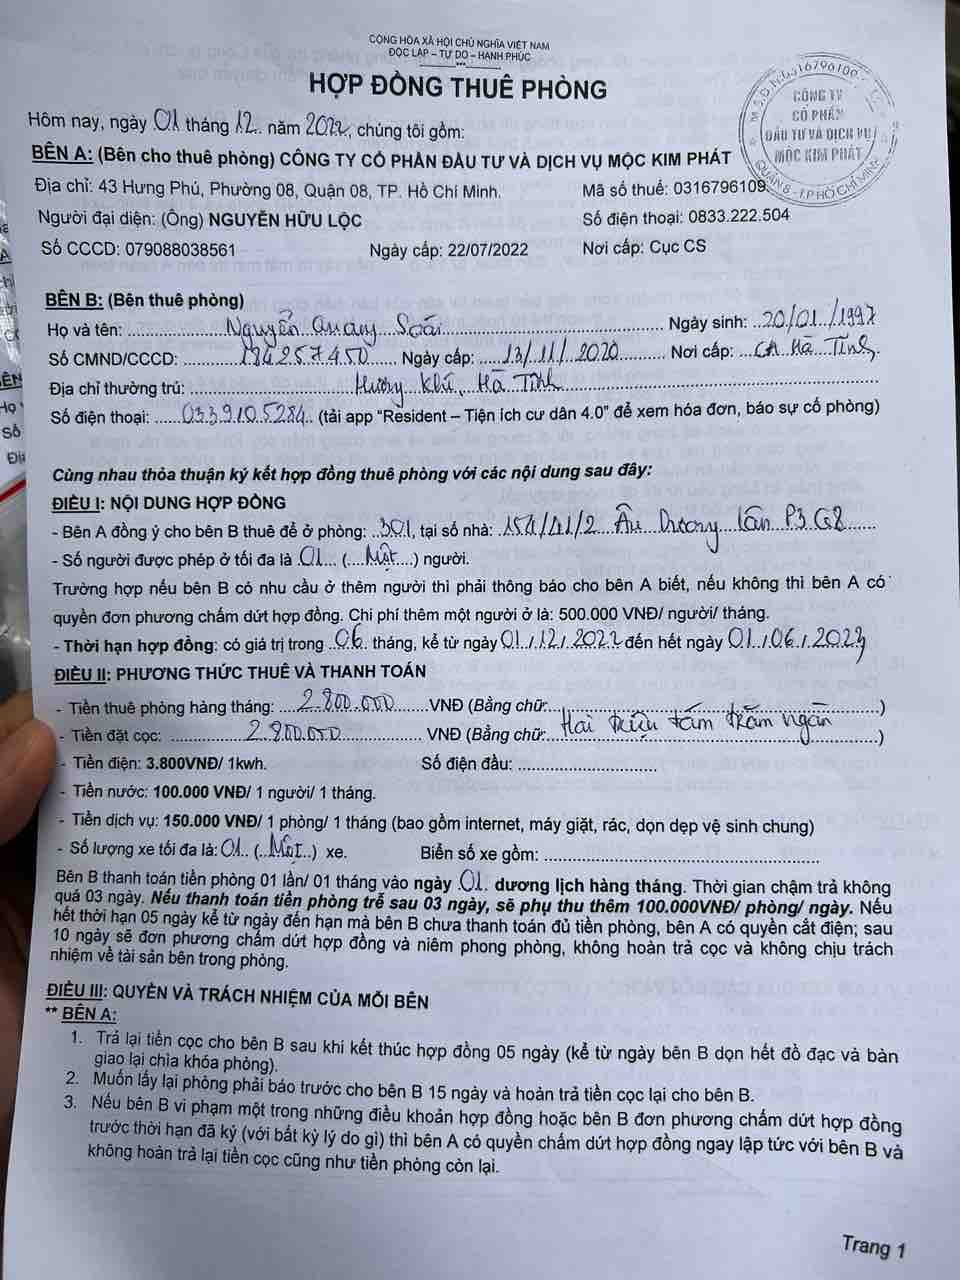 CỘNG HÒA XÃ HỘI CHỦ NGHĨA VIỆT NAM
ĐỘC LẬP – TỰ DO – HẠNH PHÚC
HỢP ĐỒNG THUÊ PHÒNG
Hôm nay, ngày 01 tháng 12 năm 2022, chúng tôi gồm:
BÊN A: (Bên cho thuê phòng) CÔNG TY CỔ PHẦN ĐẦU TƯ VÀ DỊCH VỤ MỘC KIM PHÁT
Địa chỉ: 43 Hưng Phú, Phường 08, Quận 08, TP. Hồ Chí Minh. Mã số thuế: 0316796109
Người đại diện: (Ông) NGUYỄN HỮU LỘC Số điện thoại: 0833.222.504
Số CCCD: 079088038561 Ngày cấp: 22/07/2022 Nơi cấp: Cục CS
CÔNG TY
CỔ PHẦN
ĐẦU TƯ VÀ DỊCH VỤ
MỘC KIM PHÁT
QUẬN 8 - T.P HỒ CHÍ MINH
BÊN B: (Bên thuê phòng)
Họ và tên: Nguyễn Quang Soái Ngày sinh: 20/01/1997
Số CMND/CCCD: 184257450 Ngày cấp: 13/11/2020 Nơi cấp: CA Hà Tĩnh
Địa chỉ thường trú: Hương Khê, Hà Tĩnh
Số điện thoại: 0339105284 (tải app “Resident – Tiện ích cư dân 4.0” để xem hóa đơn, báo sự cố phòng)
Cùng nhau thỏa thuận ký kết hợp đồng thuê phòng với các nội dung sau đây:
ĐIỀU I: NỘI DUNG HỢP ĐỒNG
- Bên A đồng ý cho bên B thuê để ở phòng: 301, tại số nhà: 154/41/2 Âu Dương Lân P3 Q8
- Số người được phép ở tối đa là 01 (Một) người.
Trường hợp nếu bên B có nhu cầu ở thêm người thì phải thông báo cho bên A biết, nếu không thì bên A có
quyền đơn phương chấm dứt hợp đồng. Chi phí thêm một người ở là: 500.000 VNĐ/ người/ tháng.
- Thời hạn hợp đồng: có giá trị trong 06 tháng, kể từ ngày 01/12/2022 đến hết ngày 01/06/2023
ĐIỀU II: PHƯƠNG THỨC THUÊ VÀ THANH TOÁN
- Tiền thuê phòng hàng tháng: 2.800.000 VNĐ (Bằng chữ: Hai triệu tám trăm ngàn)
- Tiền đặt cọc: 2.800.000 VNĐ (Bằng chữ: )
- Tiền điện: 3.800VNĐ/ 1kwh. Số điện đầu:
- Tiền nước: 100.000 VNĐ/ 1 người/ 1 tháng.
- Tiền dịch vụ: 150.000 VNĐ/ 1 phòng/ 1 tháng (bao gồm internet, máy giặt, rác, dọn dẹp vệ sinh chung)
- Số lượng xe tối đa là: 01 (Một) xe. Biển số xe gồm:
Bên B thanh toán tiền phòng 01 lần/ 01 tháng vào ngày 01 dương lịch hàng tháng. Thời gian chậm trả không
quá 03 ngày. Nếu thanh toán tiền phòng trễ sau 03 ngày, sẽ phụ thu thêm 100.000VNĐ/ phòng/ ngày. Nếu
hết thời hạn 05 ngày kể từ ngày đến hạn mà bên B chưa thanh toán đủ tiền phòng, bên A có quyền cắt điện; sau
10 ngày sẽ đơn phương chấm dứt hợp đồng và niêm phong phòng, không hoàn trả cọc và không chịu trách
nhiệm về tài sản bên trong phòng.
ĐIỀU III: QUYỀN VÀ TRÁCH NHIỆM CỦA MỖI BÊN
** BÊN A:
1. Trả lại tiền cọc cho bên B sau khi kết thúc hợp đồng 05 ngày (kể từ ngày bên B dọn hết đồ đạc và bàn
giao lại chìa khóa phòng).
2. Muốn lấy lại phòng phải báo trước cho bên B 15 ngày và hoàn trả tiền cọc lại cho bên B.
3. Nếu bên B vi phạm một trong những điều khoản hợp đồng hoặc bên B đơn phương chấm dứt hợp đồng
trước thời hạn đã ký (với bất kỳ lý do gì) thì bên A có quyền chấm dứt hợp đồng ngay lập tức với bên B và
không hoàn trả lại tiền cọc cũng như tiền phòng còn lại.
Trang 1